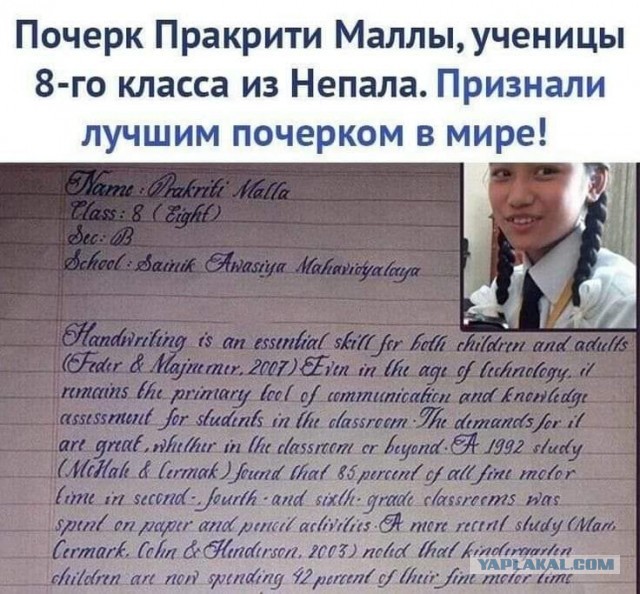 Почерк Пракрити Маллы, ученицы
8-го класса из Непала. Признали
лучшим почерком в мире!
Name : Prakriti Malla
Class : 8 ( Eight )
Sec : B
School : Sainik Awasiya Mahavidyalaya
Handwriting is an essential skill for both children and adults
(Feder & Majnemer, 2007) Even in the age of technology, it
remains the primary tool of communication and knowledge
assessment for students in the classroom. The demands for it
are great, whether in the classroom or beyond. A 1992 study
( McHale & Cermak ) found that 85 percent of all fine motor
time in second-, fourth - and sixth- grade classrooms was
spent on paper and pencil activities. A more recent study (Marr,
Cermark, Cohn & Henderson, 2003) noted that kindergarten
children are now spending 42 percent of their fine motor time
YAPLAKAL.COM